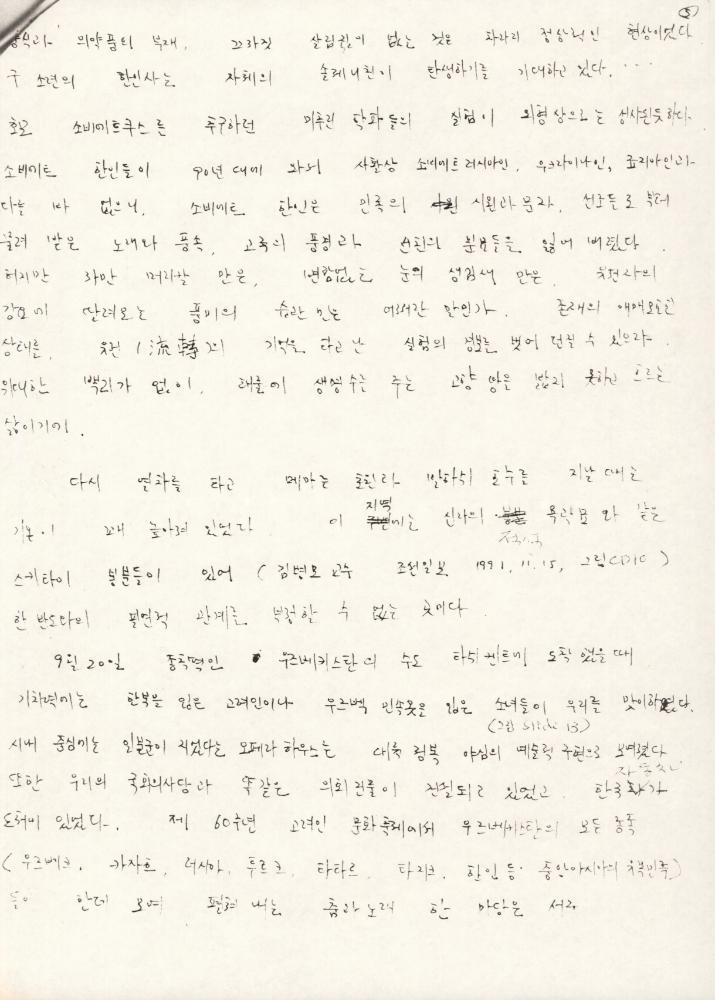 ⑤
의약품의 부재, 살림집이 없는 것은 차라리 정상적인 현상이었다.
구 소련의 한인사는 자체의 솔제니친이 탄생하기를 기대하고 있다. ...
호모 소비에트쿠스를 추구하던 미추린 학파들의 실험이 외형상으로는 성사된듯하다.
소비에트 한인들이 90년대에 와서 사환상 소비에트 러시아인, 우크라이나인, 죠지아인과
다를 바 없으니, 소비에트 한인은 민족의 시원과 문자, 선조들로부터
물려 받은 노래와 풍속, 고국의 풍경과 선친의 분묘들을 잃어 버렸다.
허지만 까만 머리칼 만은, 변함없는 눈의 생김새 만은, 조선사의
강요에 딴려오는 풍미의 습관 만은 어쩌란 말인가. 존재의 애매모호한
상태를, 유전 (流轉)의 기억을 타고난 실험의 정보를 벗어 던질 수 있으랴.
위대한 뿌리가 없이, 대를이 생명수를 주는 고향 땅을 밟지 못하고 흐르는
삶이기에.
다시 열차를 타고 메마른 초원과 발하쉬 호수를 지날 때는
기분이 꽤 높아져 있었다 이 지역에는 신라의 적석목곽묘와 같은
스키타이 봉분들이 있어 (김병모 교수 조선일보 1991, 11. 15, 그림 )
한반도와의 필연적 관계를 부정할 수 없는 곳이다
9월 20일 종착역인 우즈베키스탄의 수도 타쉬켄트에 도착했을 때
기차역에는 한복을 입은 고려인이나 우즈벡 민속옷을 입은 소녀들이 우리를 맞이하였다.
(그림 slide 13)
시내 중심가는 일본군이 지었다는 오페라 하우스는 대륙 정복 야심의 예술적 구현으로 보여졌다
또한 우리의 국회의사당과 똑같은 의회 건물이 건설되고 있었고, 한국 자동차가
도처에 있었다. 제 60주년 고려인 문화축제에서 우즈베키스탄의 모든 종족
(우즈베크, 카자흐, 러시아, 투르크, 타타르, 타지크, 한인 등 중앙아시아의 민족)
들이 한데 모여 펼쳐 내는 춤과 노래 한 마당은 서로